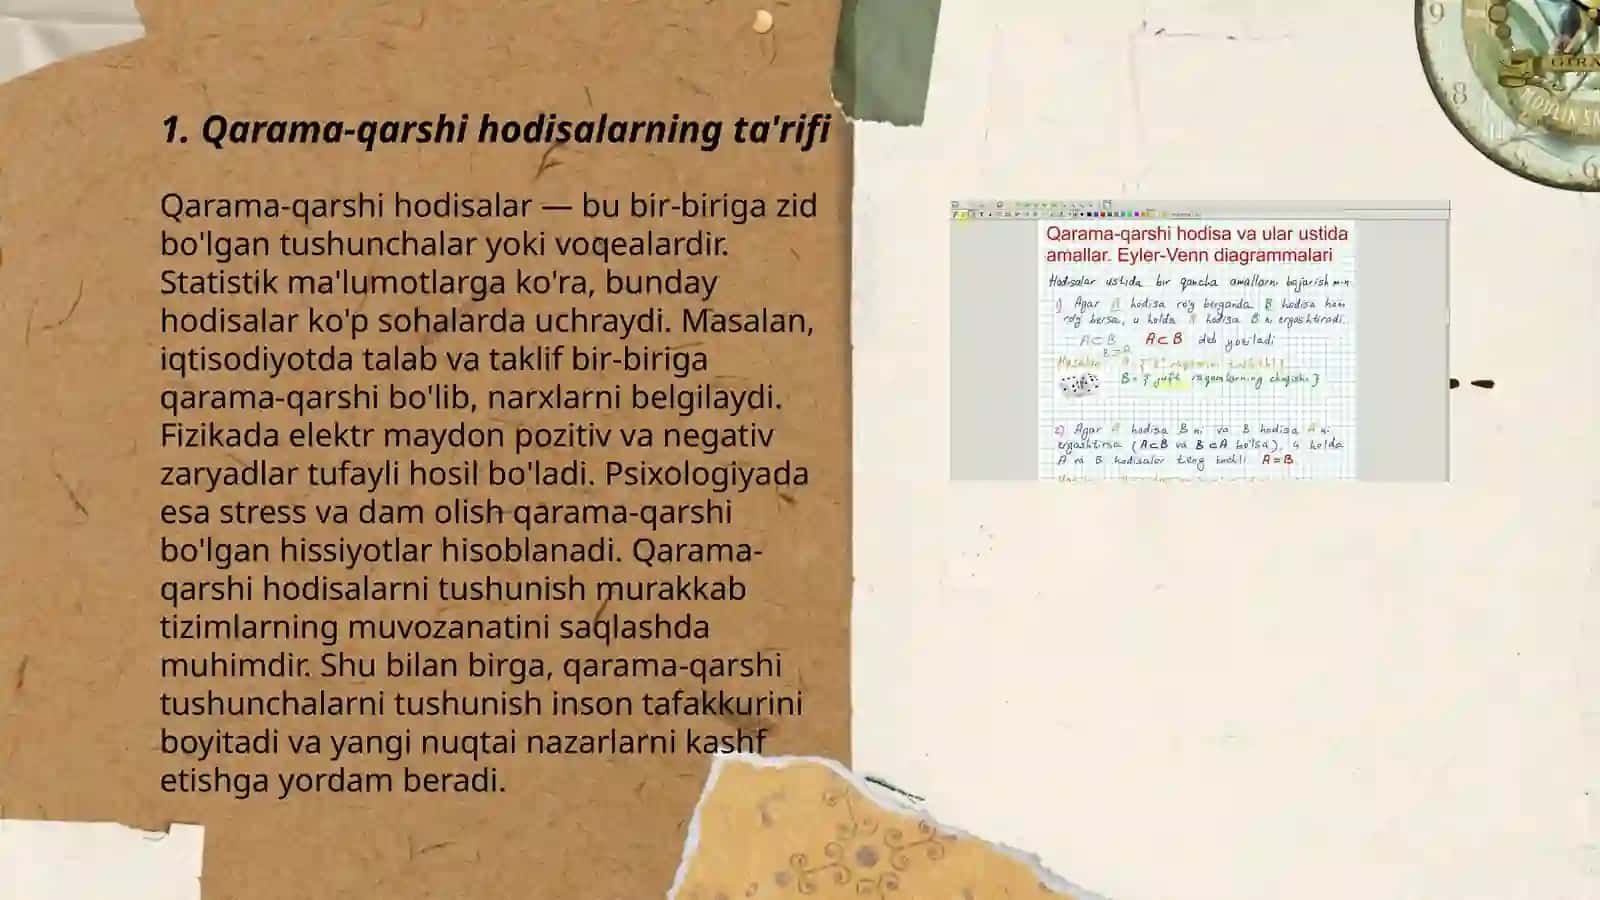 1. Qarama-qarshi hodisalarning ta'rifi
Qarama-qarshi hodisalar — bu bir-biriga zid
bo'lgan tushunchalar yoki voqealardir.
Statistik ma'lumotlarga ko'ra, bunday
hodisalar ko'p sohalarda uchraydi. Masalan,
iqtisodiyotda talab va taklif bir-biriga
qarama-qarshi bo'lib, narxlarni belgilaydi.
Fizikada elektr maydon pozitiv va negativ
zaryadlar tufayli hosil bo'ladi. Psixologiyada
esa stress va dam olish qarama-qarshi
bo'lgan hissiyotlar hisoblanadi. Qarama-
qarshi hodisalarni tushunish murakkab
tizimlarning muvozanatini saqlashda
muhimdir. Shu bilan birga, qarama-qarshi
tushunchalarni tushunish inson tafakkurini
boyitadi va yangi nuqtai nazarlarni kashf
etishga yordam beradi.
Qarama-qarshi hodisa va ular ustida
amallar. Eyler-Venn diagrammalari
Hodisalar ustida bir qancha amallarni bajarish m-n.
1) Agar A hodisa ro'y berganda B hodisa ham
ro'y bersa, u holda A hodisa B ni ergashtiradi.
A⊂B A⊂B deb yoziladi
B={juft raqamlarning chiqishi}
2) Agar A hodisa B ni va B hodisa A ni
ergashtirsa (A⊂B va B⊂A bo'lsa), u holda
A va B hodisalar teng kuchli A=B
9
8
6
MOULIN